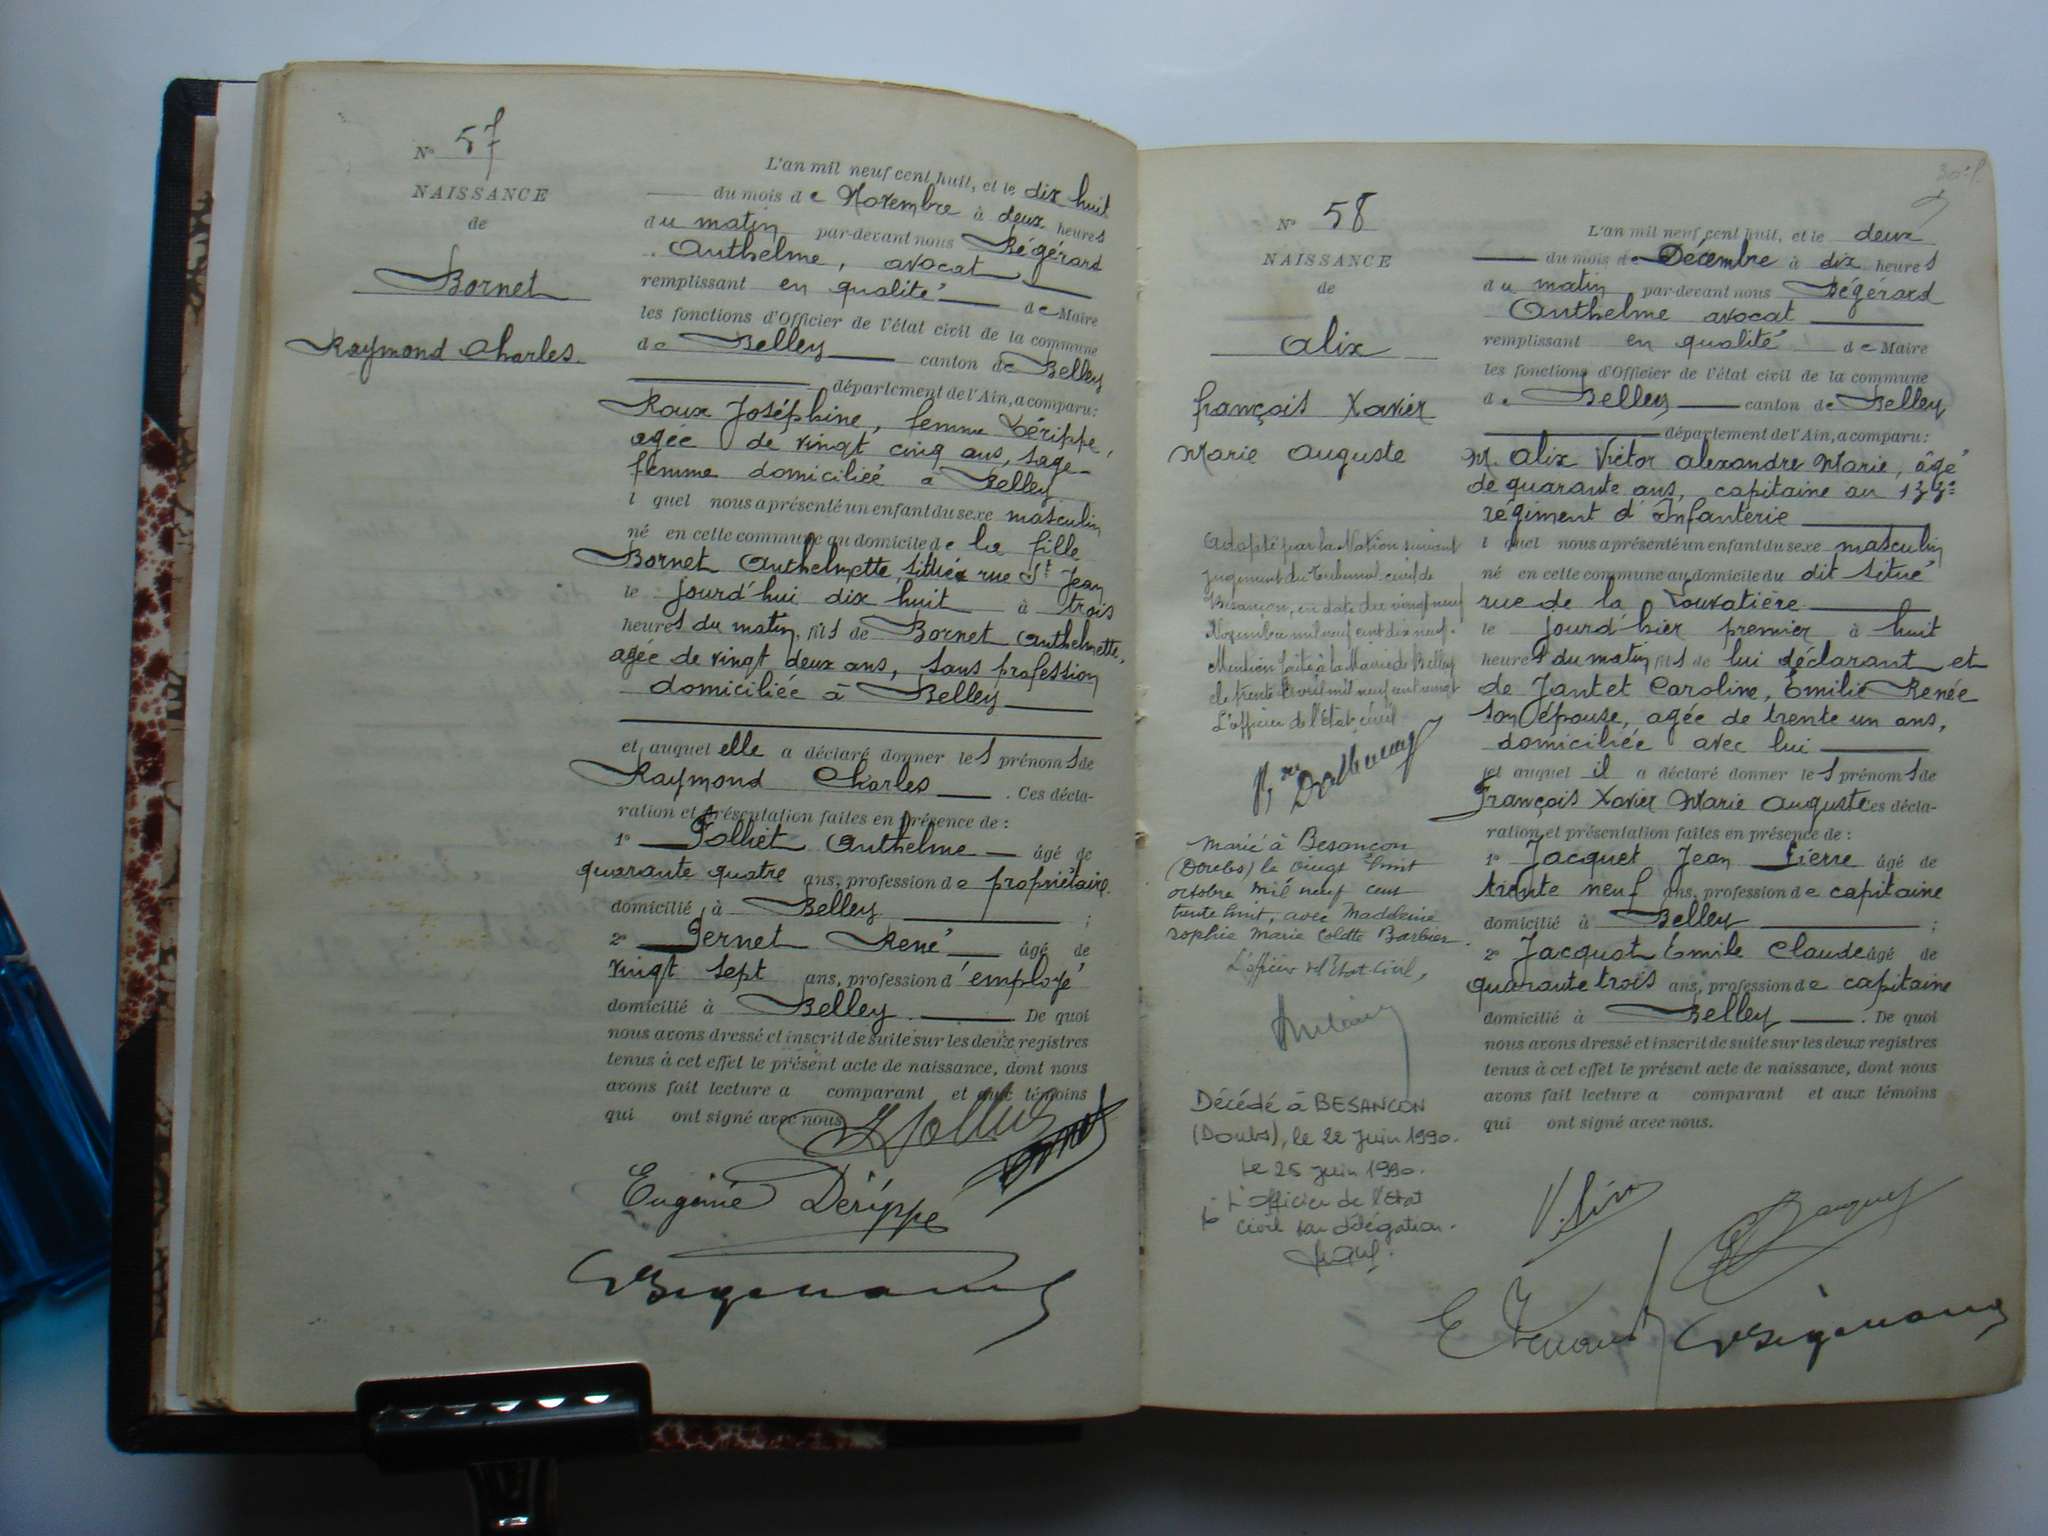 N° 57
NAISSANCE
de
Bornet
Raymond Charles
L'an mil neuf cent huit, et le dix huit
du mois de Novembre à deux heures
du matin par-devant nous Bégérard
Anthelme, avocat
remplissant en qualité de Maire
les fonctions d'Officier de l'état civil de la commune
de Belley canton de Belley
département de l'Ain, a comparu:
Roux Joséphine, femme Dérippe,
agée de vingt cinq ans, sage-
femme domiciliée à Belley
l quel nous a présenté un enfant du sexe masculin
né en cette commune au domicile de la fille
Bornet Anthelmette, située rue St Jean
le jourd'hui dix huit à trois
heures du matin, fils de Bornet Anthelmette,
agée de vingt deux ans, sans profession
domiciliée à Belley
et auquel elle a déclaré donner les prénoms de
Raymond Charles . Ces décla-
ration et présentation faites en présence de :
1° Folliet Anthelme âgé de
quarante quatre ans, profession de propriétaire
domicilié à Belley ;
2° Pernet René âgé de
vingt sept ans, profession d'employé
domicilié à Belley. De quoi
nous avons dressé et inscrit de suite sur les deux registres
tenus à cet effet le présent acte de naissance, dont nous
avons fait lecture a comparant et aux témoins
qui ont signé avec nous.
Eugénie Dérippe
N° 58
NAISSANCE
de
Alix
François Xavier
Marie Auguste
Adopté par la Nation suivant
jugement du Tribunal civil de
Besançon, en date du vingt neuf
Novembre mil neuf cent dix neuf.
Mention faite à la Mairie de Belley
le trente avril mil neuf cent vingt
L'officier de l'Etat civil
Marié à Besançon
(Doubs) le vingt huit
octobre mil neuf cent
trente huit, avec Madeleine
Sophie Marie Colette Barbier.
L'officier de l'Etat-Civil,
Décédé à BESANCON
(Doubs), le 22 Juin 1990.
Le 25 Juin 1990.
L'Officier de l'Etat
Civil par délégation.
L'an mil neuf cent huit, et le deux
du mois de Décembre à dix heures
du matin par-devant nous Bégérard
Anthelme avocat
remplissant en qualité de Maire
les fonctions d'Officier de l'état civil de la commune
de Belley canton de Belley
département de l'Ain, a comparu:
M. Alix Victor Alexandre Marie, âgé
de quarante ans, capitaine au 133e
régiment d'Infanterie
l quel nous a présenté un enfant du sexe masculin
né en cette commune au domicile du dit situé
rue de la Louvatière
le jourd'hier premier à huit
heures du matin fils de lui déclarant et
de Jantet Caroline, Emilie Renée
son épouse, agée de trente un ans,
domiciliée avec lui
et auquel il a déclaré donner les prénoms de
François Xavier Marie Auguste Ces décla-
ration et présentation faites en présence de :
1° Jacquet Jean Pierre âgé de
trente neuf ans, profession de capitaine
domicilié à Belley ;
2° Jacquot Emile Claude âgé de
quarante trois ans, profession de capitaine
domicilié à Belley . De quoi
nous avons dressé et inscrit de suite sur les deux registres
tenus à cet effet le présent acte de naissance, dont nous
avons fait lecture a comparant et aux témoins
qui ont signé avec nous.